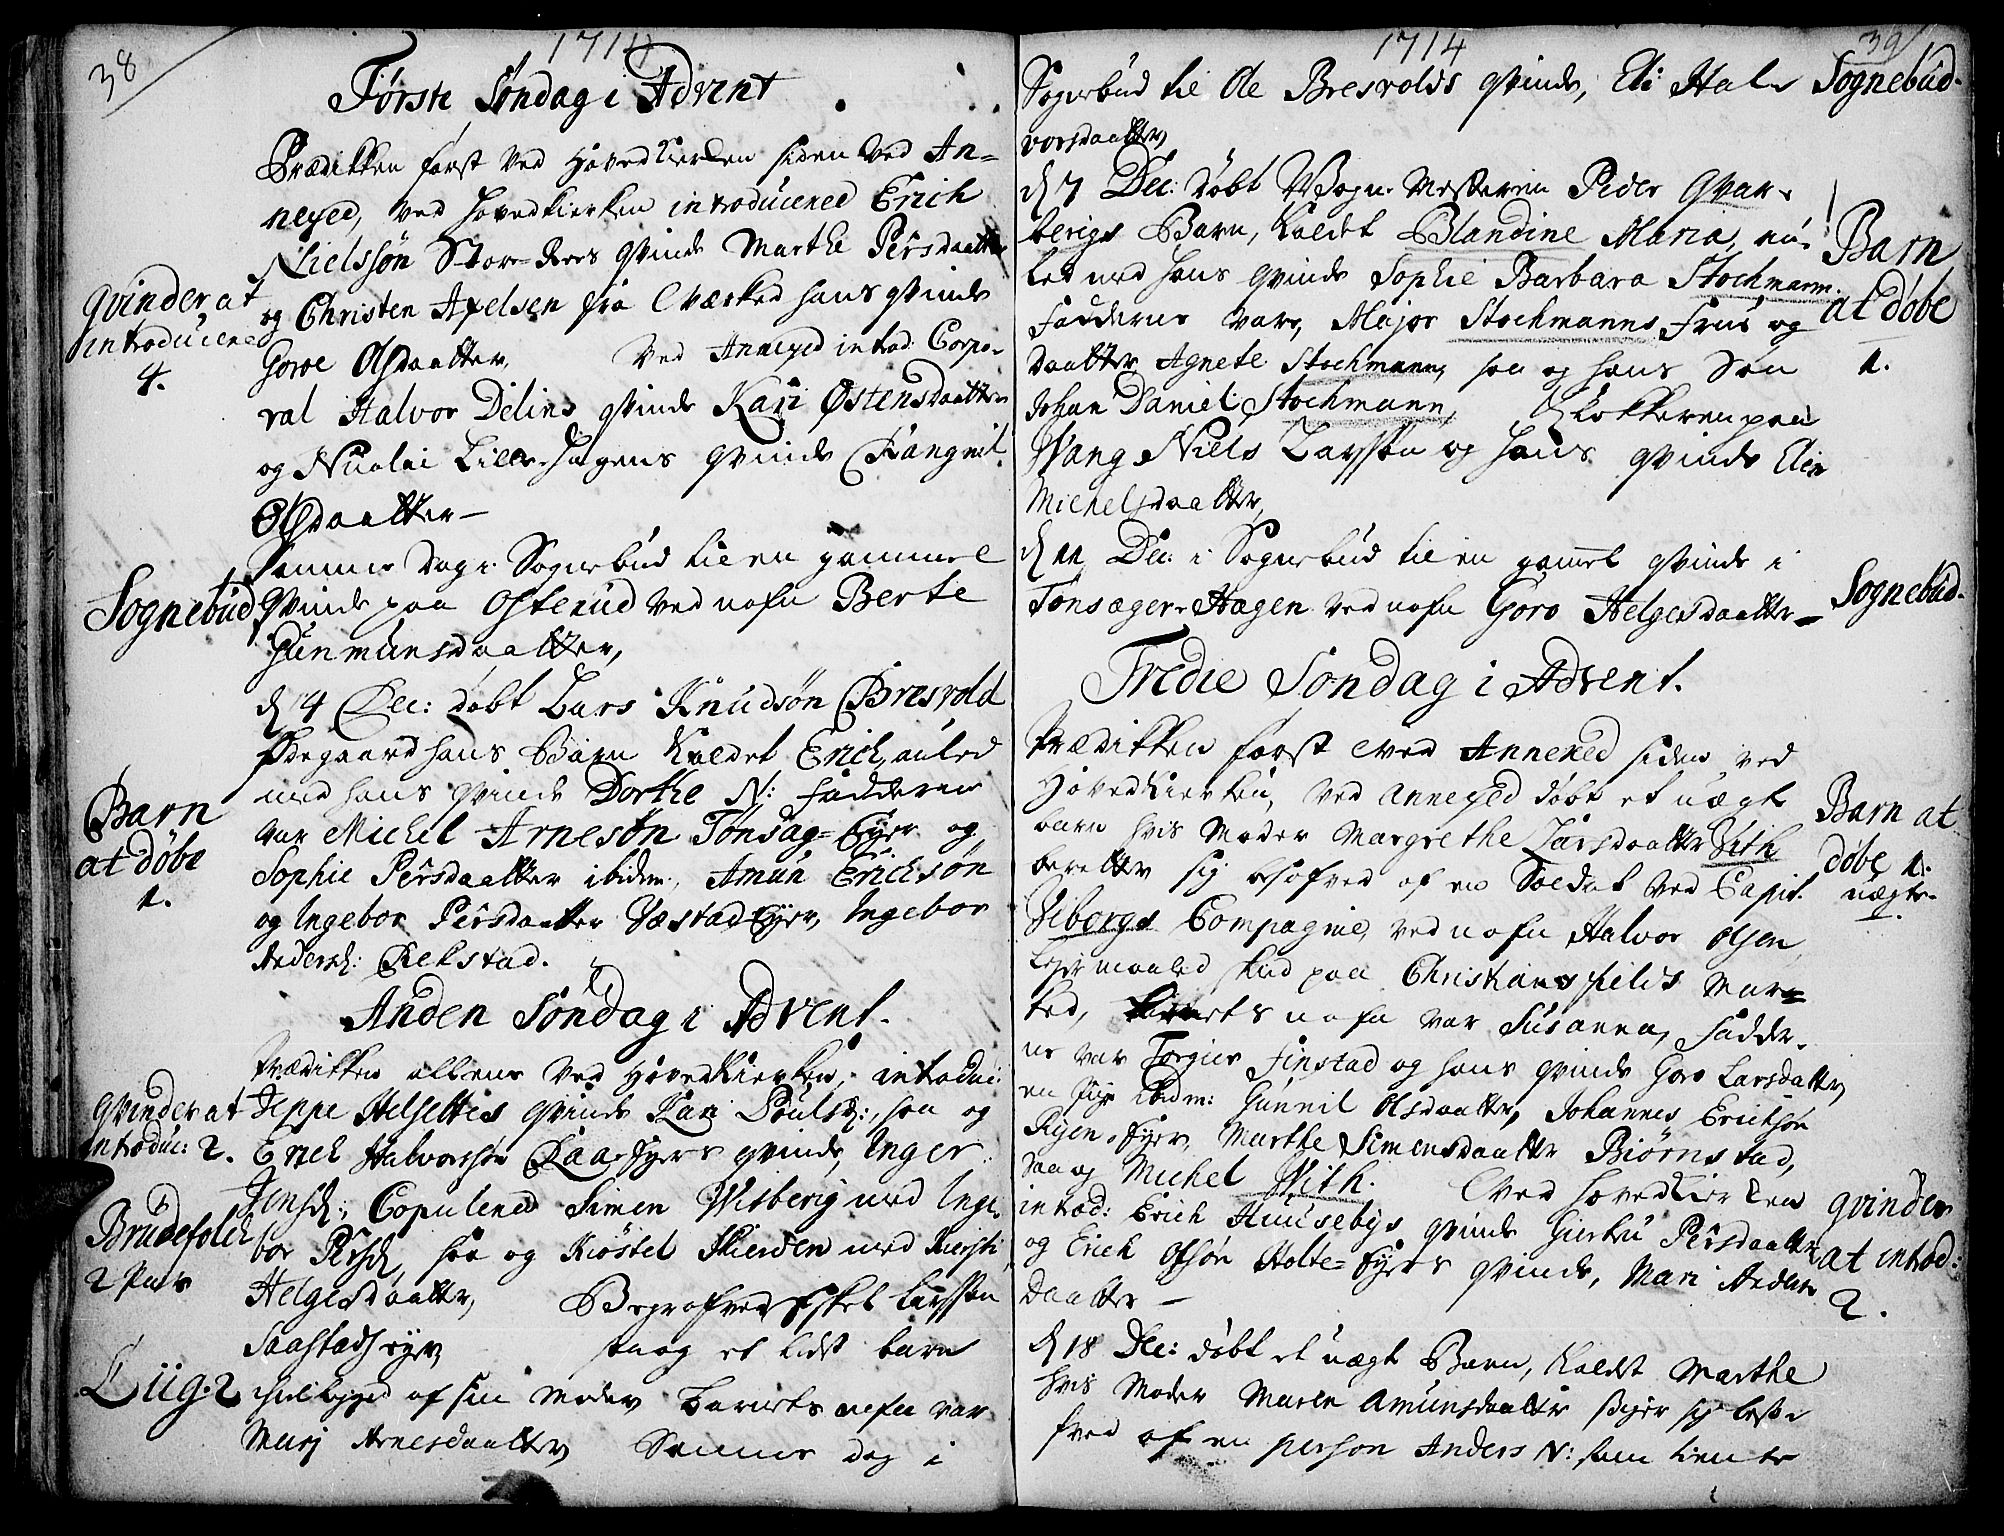 38
1714
Første Søndag i Advent
Prædikken først ved Hovedkierken siden ved An-
nexed, ved Hovedkierken introducered Erich
Nielssøn Store Rees Qvinde Marthe Persdaatter
og Christen Axelsen fra Værked hans qvinde
Goroe Olsdaatter, Ved Annexed introd: Corpo-
ral Halvor Delins qvinde Kari Østensdaatter
og Nicolai Lille-Hagens qvinde Rangnil
Olsdaatter-
qvinder at
introducered
4.
Samme dag i Sognebud til en gammel
Qvinde paa Osterud ved nafn Berte
Gunmunsdaatter,
Sognebud
d 4 Dec: døbt Lars Knudsøn Bresvold
Ødegaard hans Barn kaldet Erich, auled
med hans qvinde Dorthe N: Fadderne
var Michel Arnesøn Tønsag-Eyer og
Sophie Persdaatter ibidem, Amun Erichsøn
og Ingebor Persdaatter Væstad Eyer, Ingebor
Andersd: Rekstad.
Barn
at døbe
1.
Anden Søndag i Advent.
Prædikken allene ved Hovedkierken, introdu:
Jeppe Helsettes qvinde Kari Poulsd:, saa og
Erich Halvorsøn Raa-Eyers qvinde, Inger
Jensd:, Copulered Simen Wisberig med Inge-
bor Persd, saa og Kiøstel Skierden med Kiersti
Helgesdaatter, Begrafved Eskel Larssøn
Saastads eyer saa og et lidet barn
ihielligged af sin Moder Barnets nafn var
Marj Arnesdaatter, Samme dag i
qvinder at
introduc: 2.
Brudefolch
2 Par
Liig. 2
1714
39
Sognebud til Ole Bresvolds qvinde, Eli Hal-
vorsdaatter
Sognebud.
d 7 Dec: døbt Vogn-Mesteren Peder Qvar-
berigs Barn, kaldet Blandine Maria, au-
let med hans qvinde Sophie Barbara Stochmann.
Fadderne vare, Major Stochmanns Frue og
Daatter Agnete Stochmann, saa og hans Søn
Johan Daniel Stochmann, Klokkeren paa
Wang Niels Larssøn og hans qvinde Elen
Michelsdaatter,
Barn
at døbe
1.
d 11 Dec: i Sognebud til en gamel qvinde i
Tonsager-Hagen ved nafn Goro Helgesdaatter-
Sognebud.
Tredie Søndag i Advent.
Prædikken først ved Annexed siden ved
Hovedkierken, ved Annexed døbt et uægte
barn hvis Moder Margrethe Larsdaatter Vith
beretter sig besofved af en Soldat ved Capit.
Viborgs Compagnie, ved nafn Halvor Olsen
Leyermaaled skud paa Christiansfields Mar-
ked, Barnets nafn var Susanna, Fadder-
ne var Torgier Finstad og hans qvinde Goro Larsdatter,
en pige ibidem: Gunnil Olsdaatter, Johannes Erichsøn
Rijen-Eyer, Marthe Simensdaatter Biørnstad,
saa og Michel Vith. Ved Hovedkierken
introd: Erich Huusebys qvinde Giertru Persdaatter
og Erich Olsøn Holte-Eyers qvinde, Mari Anders
Daatter -
Barn at
døbe 1.
uægte.
qvinder
at introd:
2.
d 18 Dec: døbt et uægte Barn, kaldet Marthe
hvis Moder Maren Amunsdaatter siger sig beso-
fved af en person Anders N: som tiente